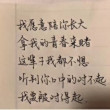 我愿意陪你长大
拿我的青春来赌
这辈子我都不想
听到你口中的对不起
我要照对得起